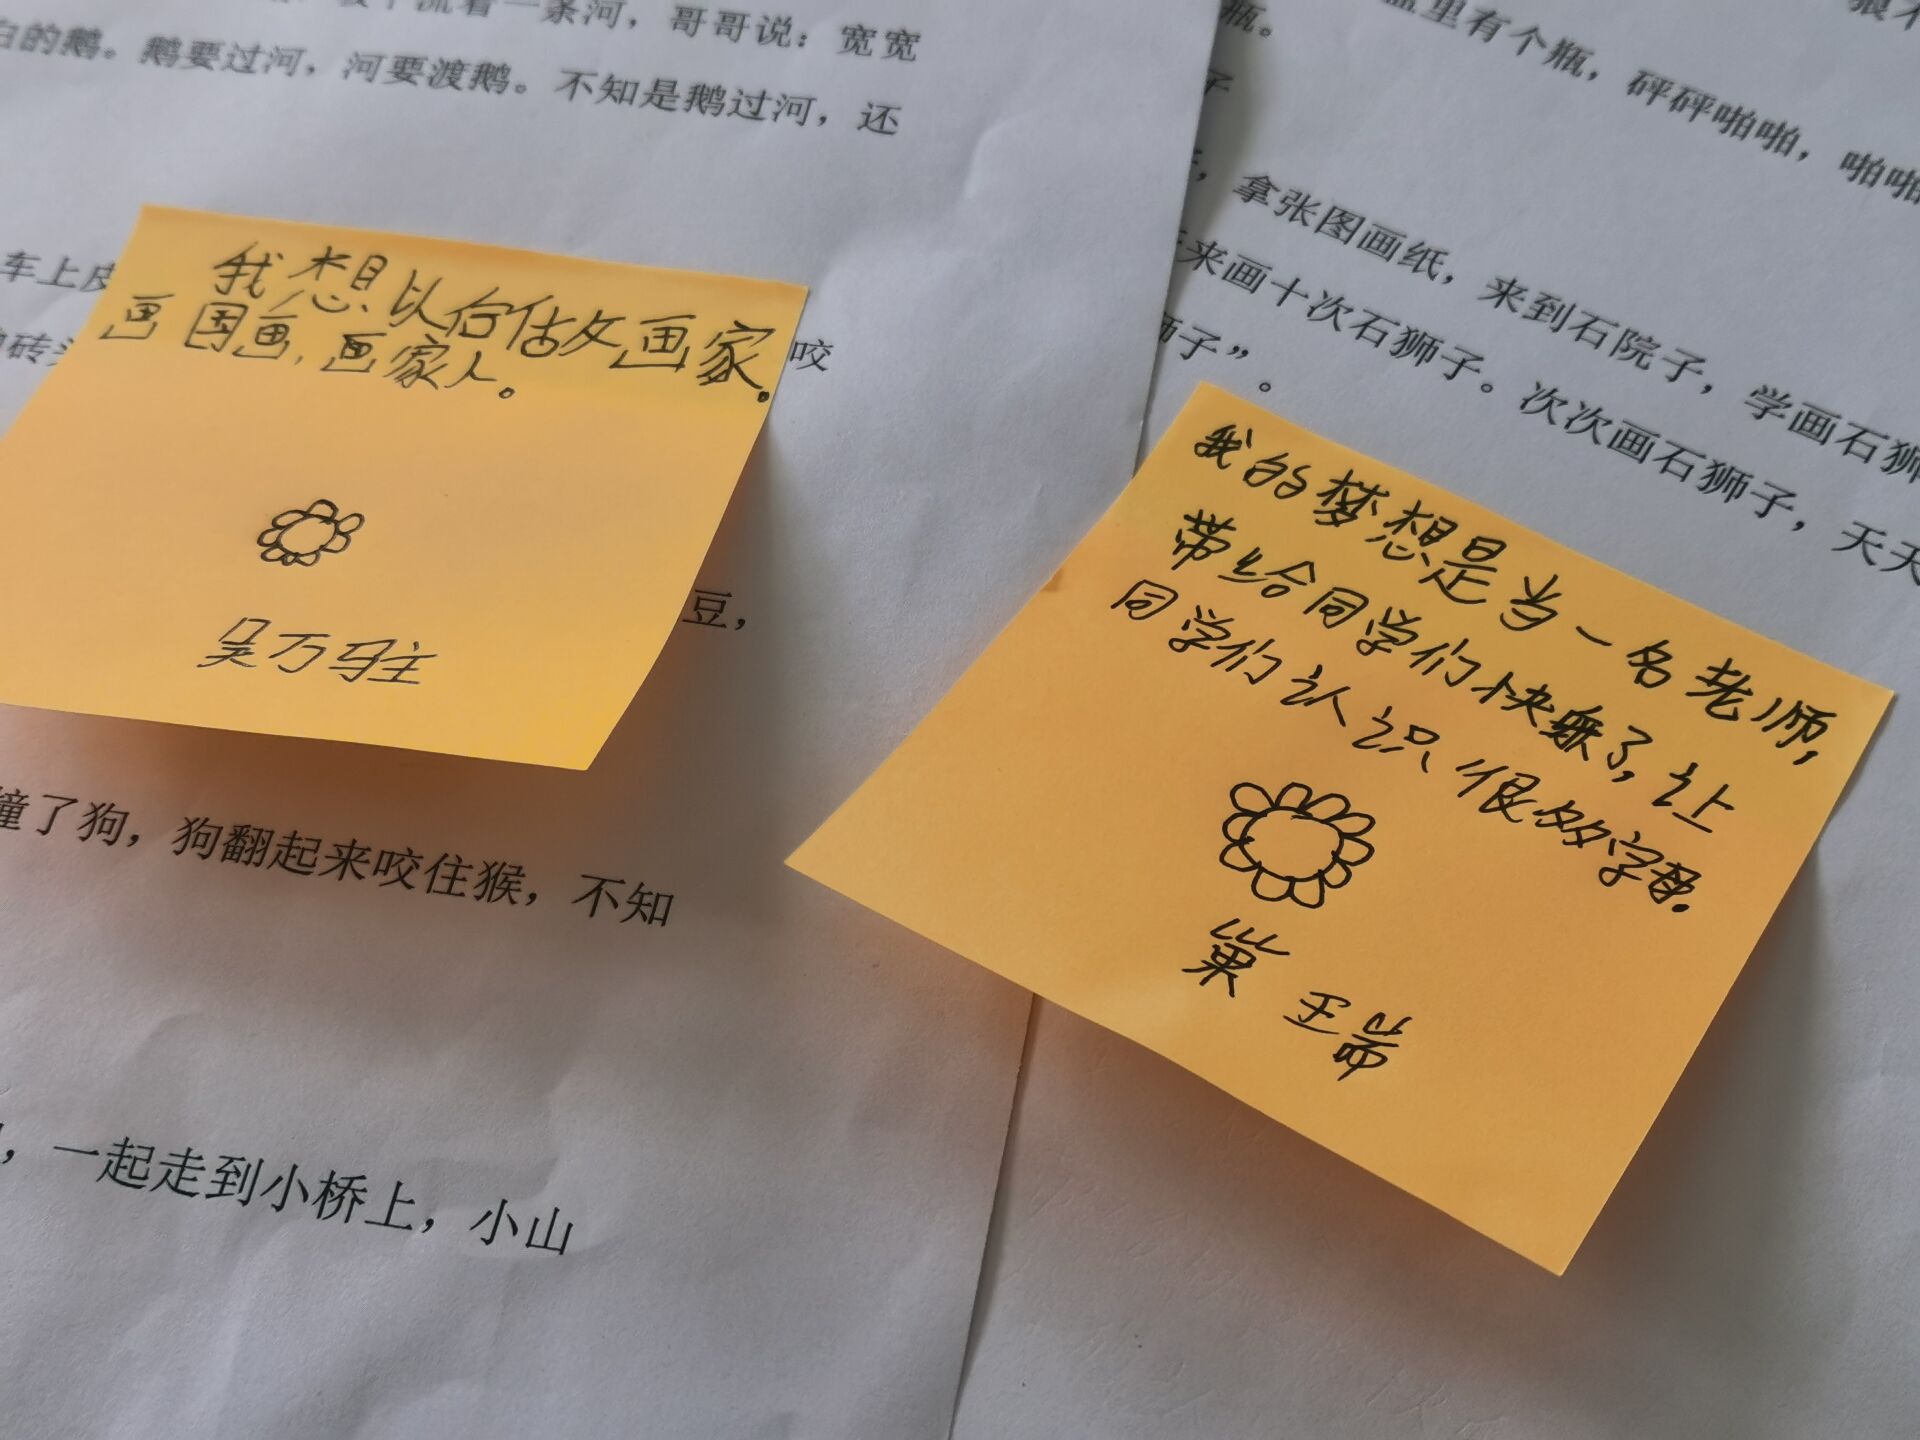 流着一条河，哥哥说：宽宽
白的鹅。鹅要过河，河要渡鹅。不知是鹅过河，还
车上
咬
砖
豆，
撞了狗，狗翻起来咬住猴，不知
，一起走到小桥上，小山
我想以后做画家。
画国画，画家人。
吴万驻
里有个瓶，砰砰啪啪，啪啪
瓶。
子
，拿张图画纸，来到石院子，学画石狮
来画十次石狮子。次次画石狮子，天天
狮子”。
我的梦想是当一名老师，
带给同学们快乐，让
同学们认识很多字。